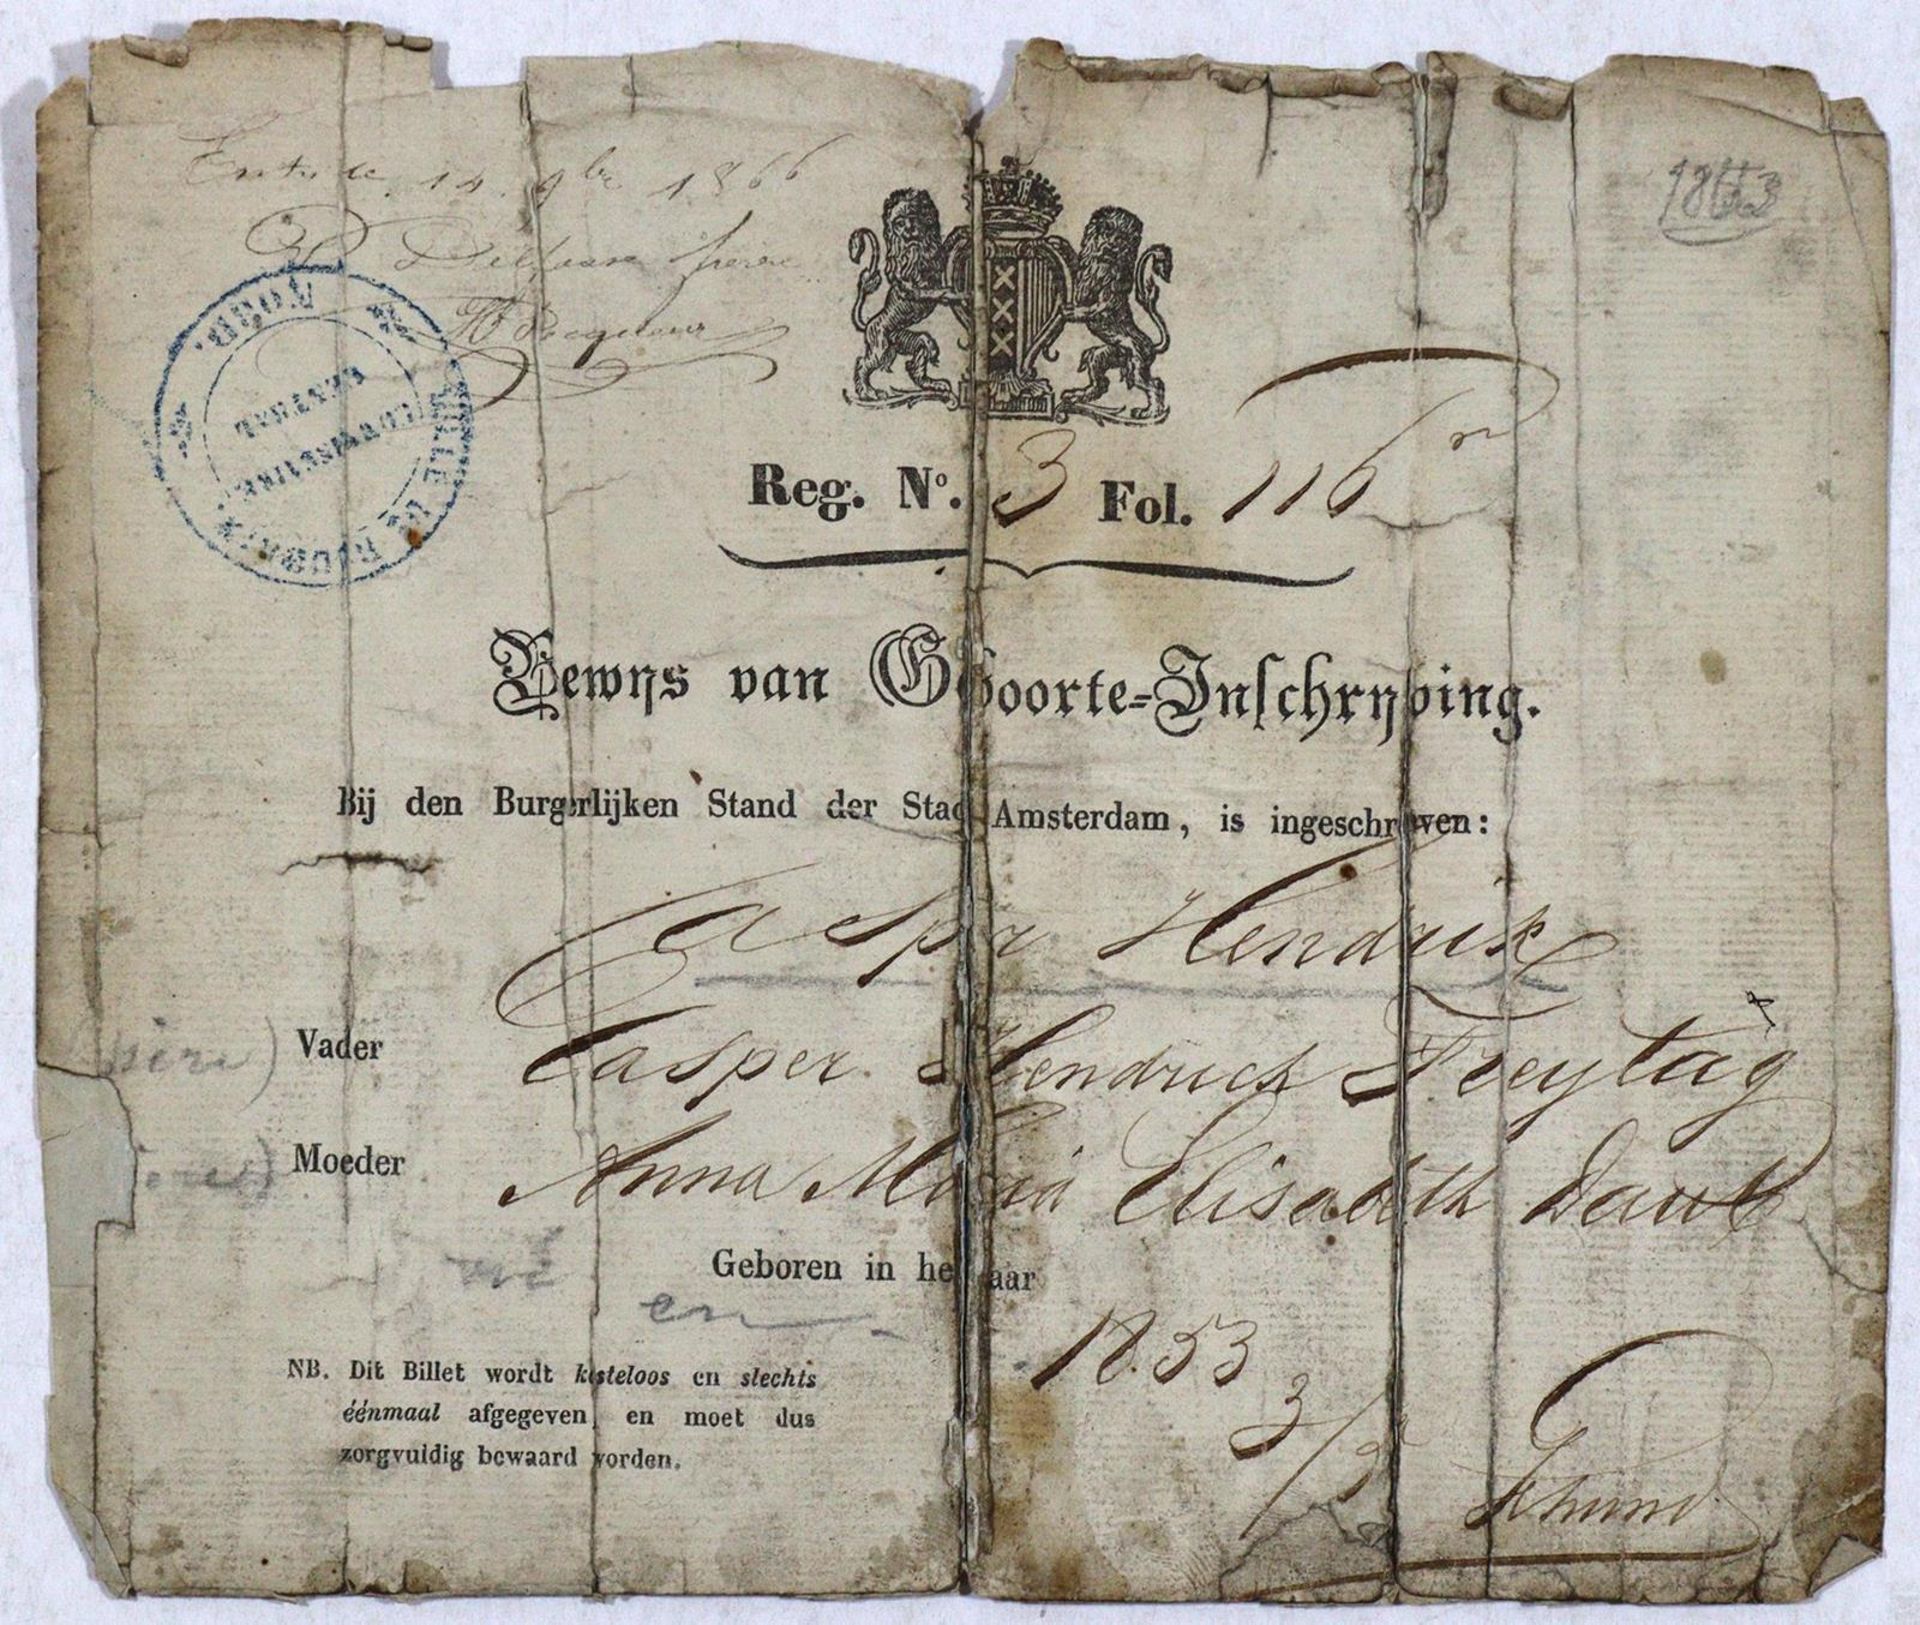 Entrée 14 9bre 1866
1853
frère
VILLE DE ROUBAIX
NORD.
COMMISSARIAT
CENTRAL
Reg. No. 3 Fol. 116
Bewys van Geboorte-Inschryving.
Bij den Burgerlijken Stand der Stad Amsterdam, is ingeschreven:
Casper Hendrik
père) Vader Casper Hendrich Freytag
Moeder Anna Maria Elisabeth Daub
né
Geboren in het Jaar
en
1853
3/
NB. Dit Billet wordt kosteloos en slechts
éénmaal afgegeven, en moet dus
zorgvuldig bewaard worden.